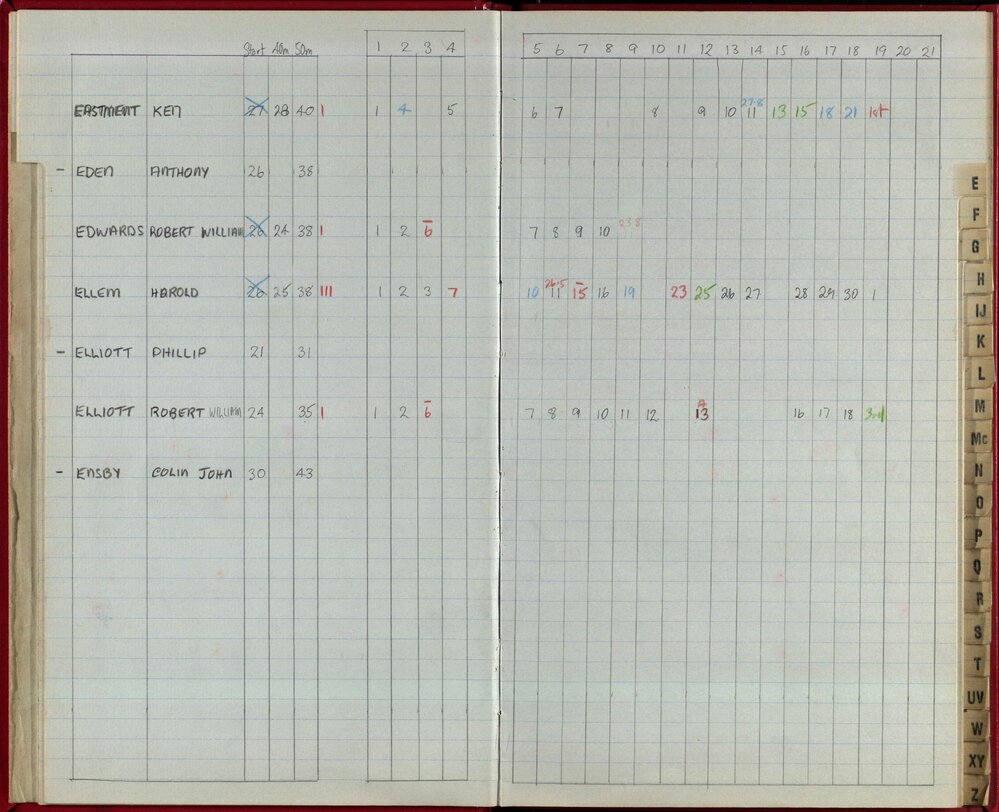 Start 40m 50m 1 2 3 4 5 6 7 8 9 10 11 12 13 14 15 16 17 18 19 20 21
EASTMENT KEN 27 28 40 1 1 4 5 6 7 8 9 10 27.8 11 13 15 18 21 1st
- EDEN ANTHONY 26 38
EDWARDS ROBERT WILLIAM 26 24 38 1 1 2 6 7 8 9 10 23.8
ELLEM HAROLD 26 25 38 111 1 2 3 7 10 26.5 11 15 16 19 23 25 26 27 28 29 30 1
- ELLIOTT PHILLIP 21 31
ELLIOTT ROBERT WILLIAM 24 35 1 1 2 6 7 8 9 10 11 12 A 13 16 17 18 3rd
- ENSBY COLIN JOHN 30 43
E
F
G
H
IJ
K
L
M
Mc
N
O
P
Q
R
S
T
UV
W
XY
Z